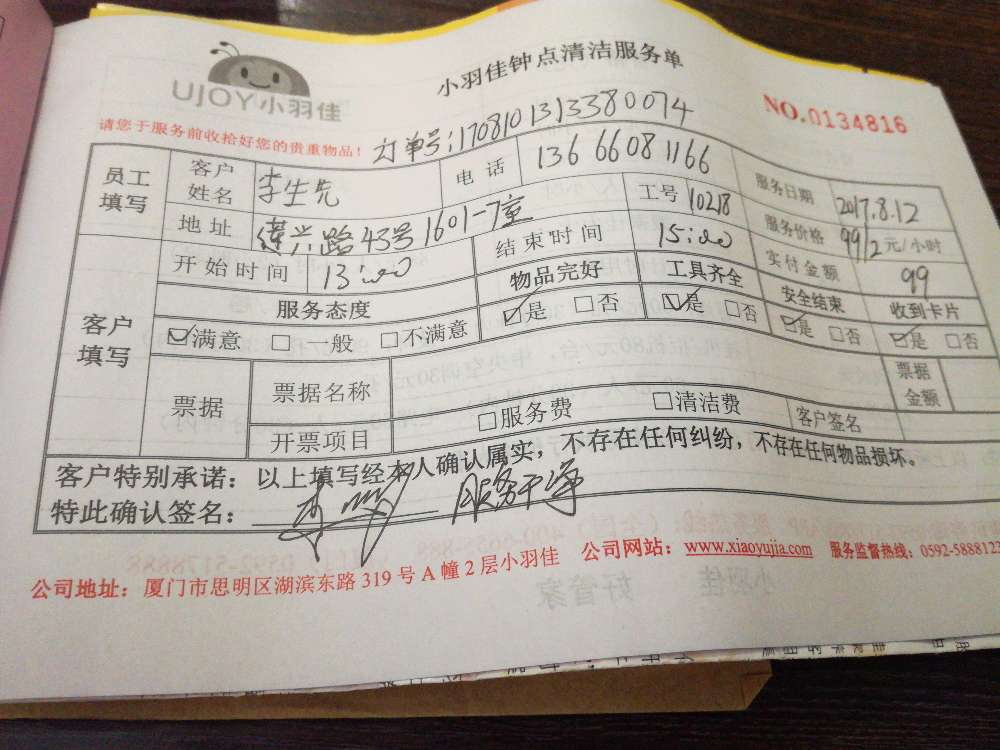 UJOY小羽佳
小羽佳钟点清洁服务单
NO.0134816
请您于服务前收拾好您的贵重物品!
订单号:1708101313380074
员工填写 客户姓名 李生先 电话 13666081166 服务日期 2017.8.12
地址 兴路43号1601-7室 工号 10218 服务价格 99/2元/小时
开始时间 13:00 结束时间 15:00 实付金额 99
客户填写 服务态度 物品完好 工具齐全 安全结束 收到卡片
☑满意 □一般 □不满意 ☑是 □否 ☑是 □否 ☑是 □否 ☑是 □否
票据 票据名称 票据金额
开票项目 □服务费 □清洁费 客户签名
客户特别承诺:以上填写经本人确认属实,不存在任何纠纷,不存在任何物品损坏。
特此确认签名: 服务干净
公司地址:厦门市思明区湖滨东路319号A幢2层小羽佳 公司网站:www.xiaoyujia.com 服务监督热线:0592-5888123